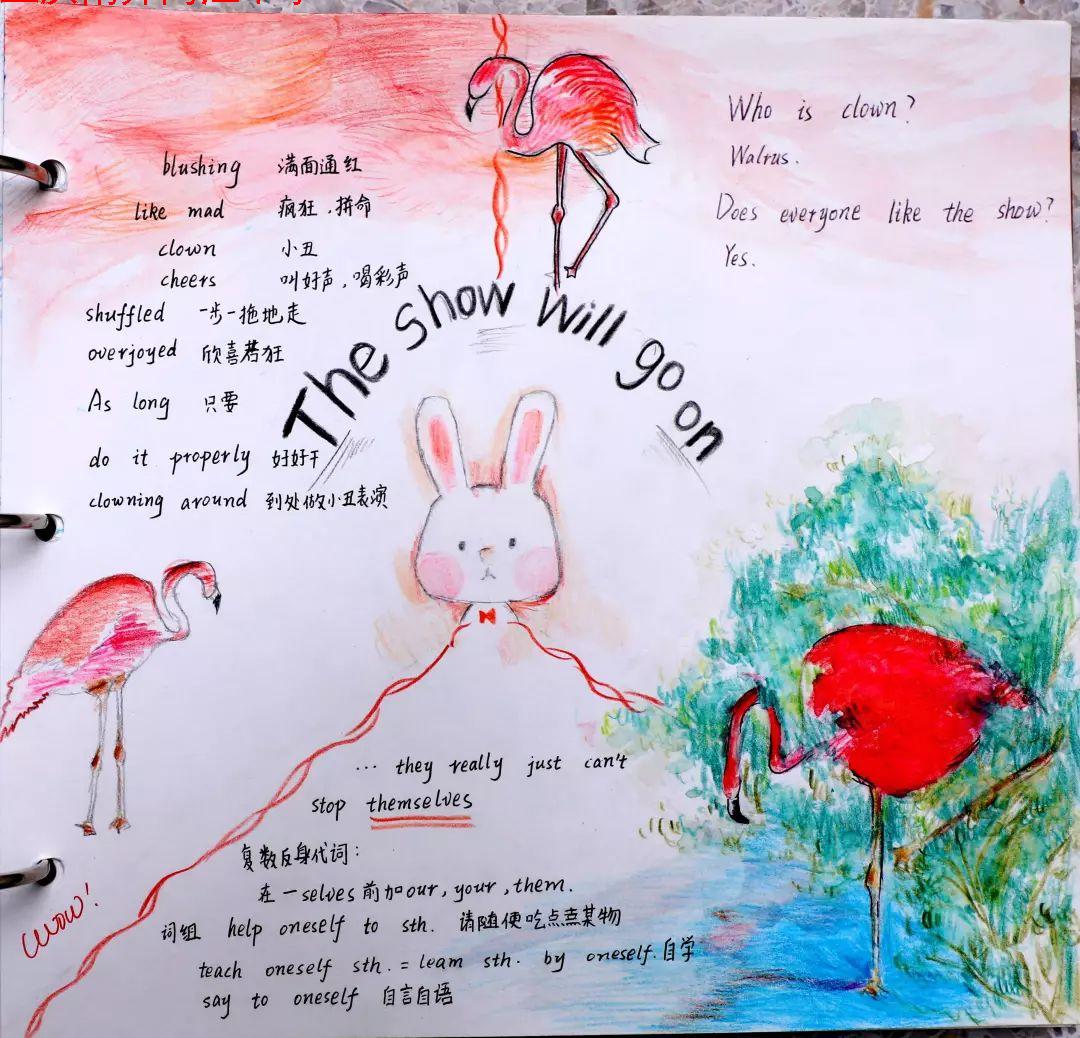 The show will go on
blushing 满面通红
like mad 疯狂,拼命
clown 小丑
cheers 叫好声,喝彩声
shuffled 一步一拖地走
overjoyed 欣喜若狂
As long 只要
do it properly 好好干
clowning around 到处做小丑表演
Who is clown?
Walrus.
Does everyone like the show?
Yes.
... they really just can't
stop themselves
复数反身代词:
在-selves前加our,your,them.
词组 help oneself to sth. 请随便吃点某物
teach oneself sth.=learn sth. by oneself.自学
say to oneself 自言自语
wow!